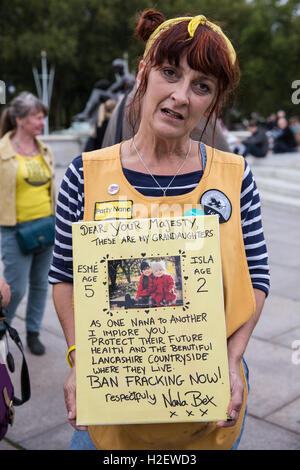 PARTY NANA
DEAR YOUR MAJESTY,
THESE ARE MY GRANDAUGHTERS
ESME
AGE
5
ISLA
AGE
2
AS ONE NANA TO ANOTHER
I IMPLORE YOU.
PROTECT THEIR FUTURE
HEALTH AND THE BEAUTIFUL
LANCASHIRE COUNTRYSIDE
WHERE THEY LIVE.
BAN FRACKING NOW!
respectfully Nana Bex
x x x
alamy
Image ID: H2EWD3
www.alamy.com